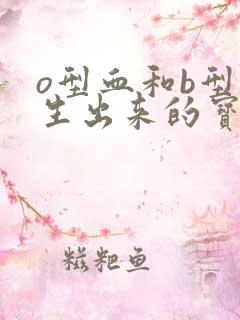 o型血和b型
生出来的寶
糍粑鱼